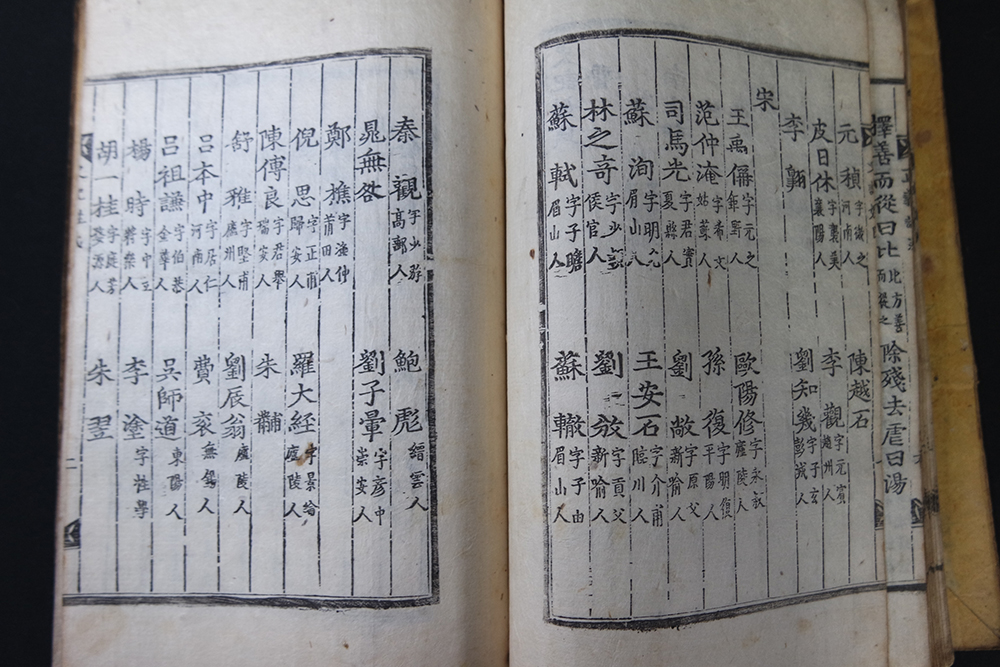 擇善而從曰比 比方善而從之 除殘去虐曰湯
元稹 字微之 河南人 陳越石
皮日休 字襲美 襄陽人 李觀 字元賓 趙州人
李翱 劉知幾 字子玄 彭城人
宋
王禹偁 字元之 鉅野人 歐陽修 字永叔 廬陵人
范仲淹 字希文 姑蘇人 孫復 字明復 平陽人
司馬光 字君實 夏縣人 劉敞 字原父 新喻人
蘇洵 字明允 眉山人 王安石 字介甫 臨川人
林之奇 字少穎 侯官人 劉攽 字貢父 新喻人
蘇軾 字子瞻 眉山人 蘇轍 字子由 眉山人
秦觀 字少游 高郵人 鮑彪 縉雲人
晁無咎 劉子暈 字彥中 崇安人
鄭樵 字漁仲 莆田人
倪思 字正甫 歸安人 羅大經 字景綸 廬陵人
陳傅良 字君舉 瑞安人 朱黼
舒雅 字堅甫 廬州人 劉辰翁 廬陵人
呂本中 字居仁 河南人 費袞 無錫人
呂祖謙 字伯恭 金華人 吳師道 東陽人
楊時 字中立 將樂人 李塗 字性學
胡一桂 字庭芳 婺源人 朱翌